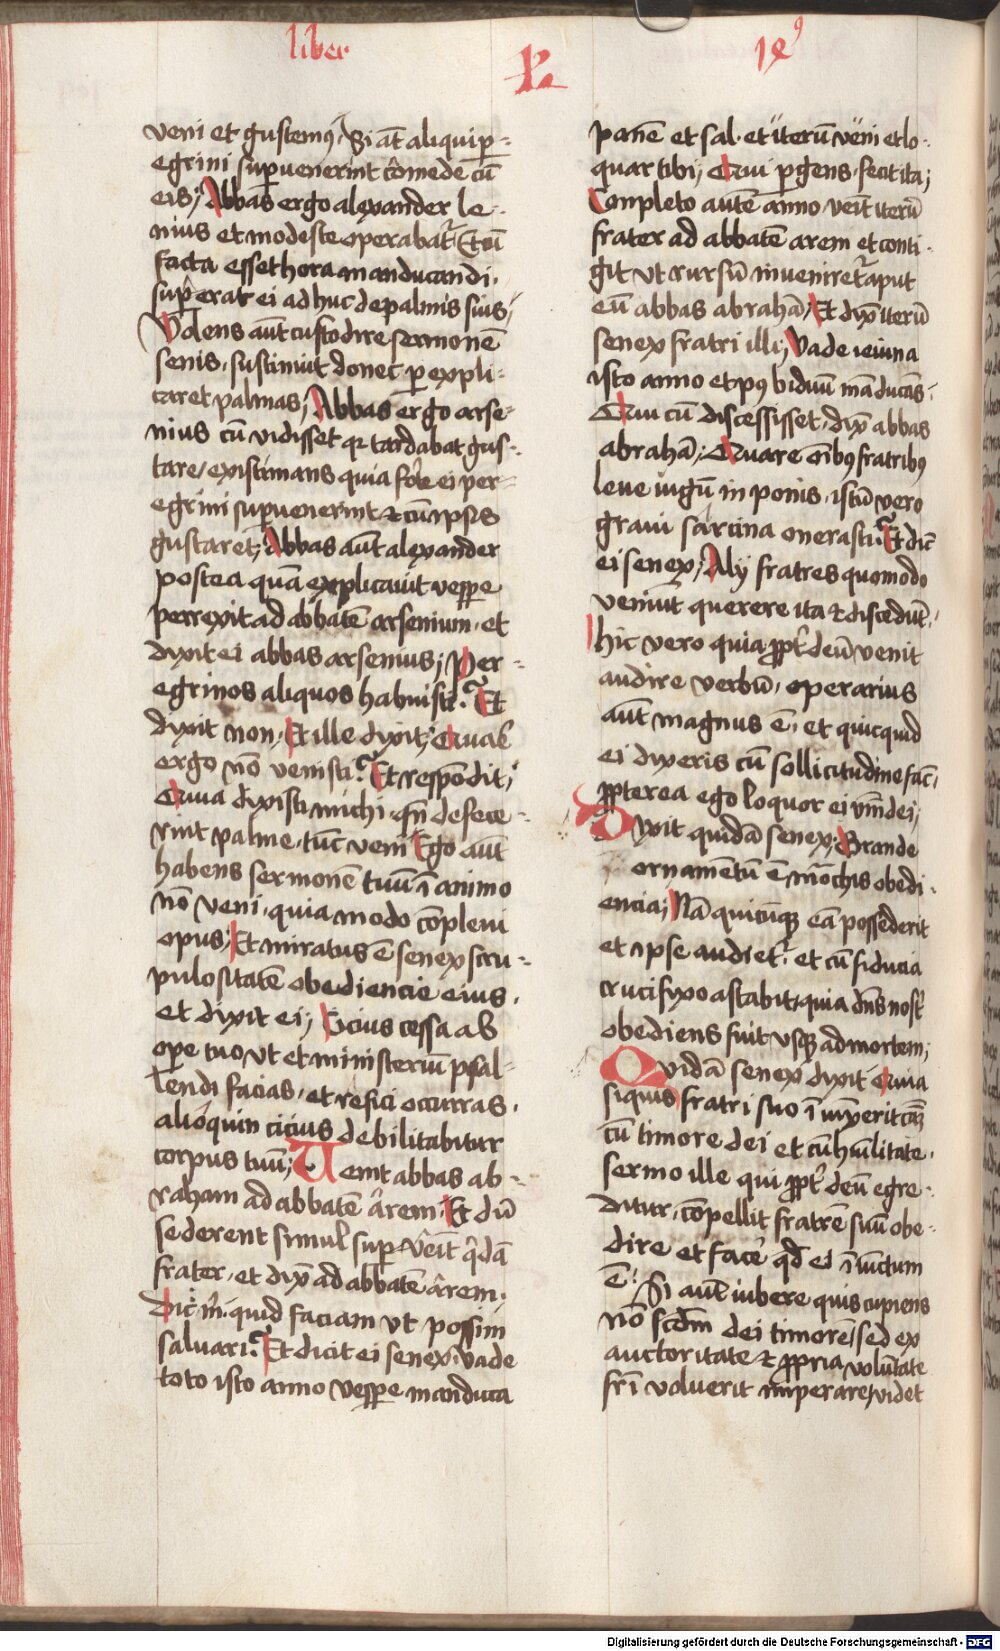 liber
L
veni et gustemꝰ, Si aūt aliqui per-
egrini supervenerint cōmede cū
eis; Abbas ergo alexander le-
nius et modeste operabatr̄ Et cū
facta esset hora manducandi.
superat ei adhuc de palmis suis;
Volens aūt custodire sermonē
senis, sustinuit donec per expli-
caret palmas; Abbas ergo arse-
nius cū vidisset qꝛ tardabat gus-
tare, existimans quia forte ei per-
egrini supervenerint ⁊ cū ipsis
gustaret; Abbas aūt alexander
postea quā explicauit vespere
perrexit ad abbatē arsenium, et
dixit ei abbas arsenius; Per-
egrinos aliquos habuisti? Et
dixit non, Et ille dixit; Quare
ergo nō venisti? Et respōdit;
Quia dixisti michi, qn̄ defece-
rint palme, tūc veni Ego aūt
habens sermonē tuū ī animo
nō veni, quia modo cōplevi
opus, Et miratus ē senex scru-
pulositatē obediencie eius,
et dixit ei; Cicius cessa ab
opere tuo vt et ministeriū psal-
lendi facias, et refici occurras,
alioquin cicius debilitabitur
corpus tuū; Uenit abbas ab-
raham ad abbatē arem; Et dū
sederent simul supervēit qͥdā
frater, et dix̄ ad abbatē arem.
Dic m̄. quid faciam vt possim
saluari? Et dicit ei senex; vade
toto isto anno vespere manduca
panē et sal. et iterū veni et lo-
quar tibi; Qui pergens, fecit ita;
Conpleto autē anno, veīt iterū
frater ad abbatē arem et conti-
git vt rursū inveniretr̄ aput
eū abbas abrahā, Et dix̄ iterū
senex fratri illi; Vade ieiuna
isto anno et pꝰ biduū māducās.
Qui cū discessisset, dix̄ abbas
abrahā; Quare oībꝰ fratribꝰ
leue iugū in ponis, istū vero
graui sarcina onerasti? Et dic̄
ei senex; Alij fratres quomodo
veniūt querere ita ⁊ discedūt.
hic vero quia ꝓpt̄ deū venit
audire verbū, operarius
aūt magnus ē, et quicquid
ei dixeris cū sollicitudine fac̄,
ꝓpterea ego loquor ei v̄m dei;
Dixit quidā senex; Grande
ornamētū ē mōchis obedi-
encia; Nā quicūqꝫ eā possederit
et ipse audietr̄, et cū fiducia
crucifixo astabit, quia dn̄s nost̄
obediens fuit vsqꝫ ad mortem;
Quidā senex dixit Quia
siquis fratri suo ī
cū timore dei et cū hūilitate,
sermo ille qui ꝓpt̄ deū egre-
ditur, cōpellit fratrē suū obe-
dire et face͛ qd̄ ei ī iūctum
ē. Si aūt iubere quis cupiens
nō scd̄m dei timorē, sed ex
auctoritate ⁊ ꝓpria volūtate
fr̄i voluerit imperare, videt